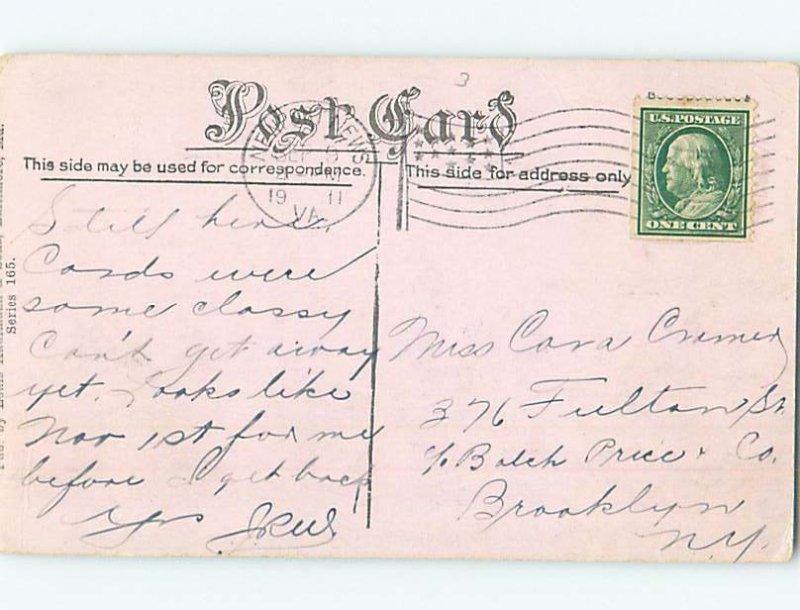 3
Post Card
NEWPORT NEWS
SEP
19 11
VA.
This side may be used for correspondence.
This side for address only
U.S. POSTAGE
ONE CENT
Series 165.
Still here.
Cards were
some classy
Can't get away
yet. Looks like
Nov 1st for me
before I get back
Yrs
Miss Cora Cramer
376 Fulton St
c/o Balch Price & Co.
Brooklyn
N.Y.